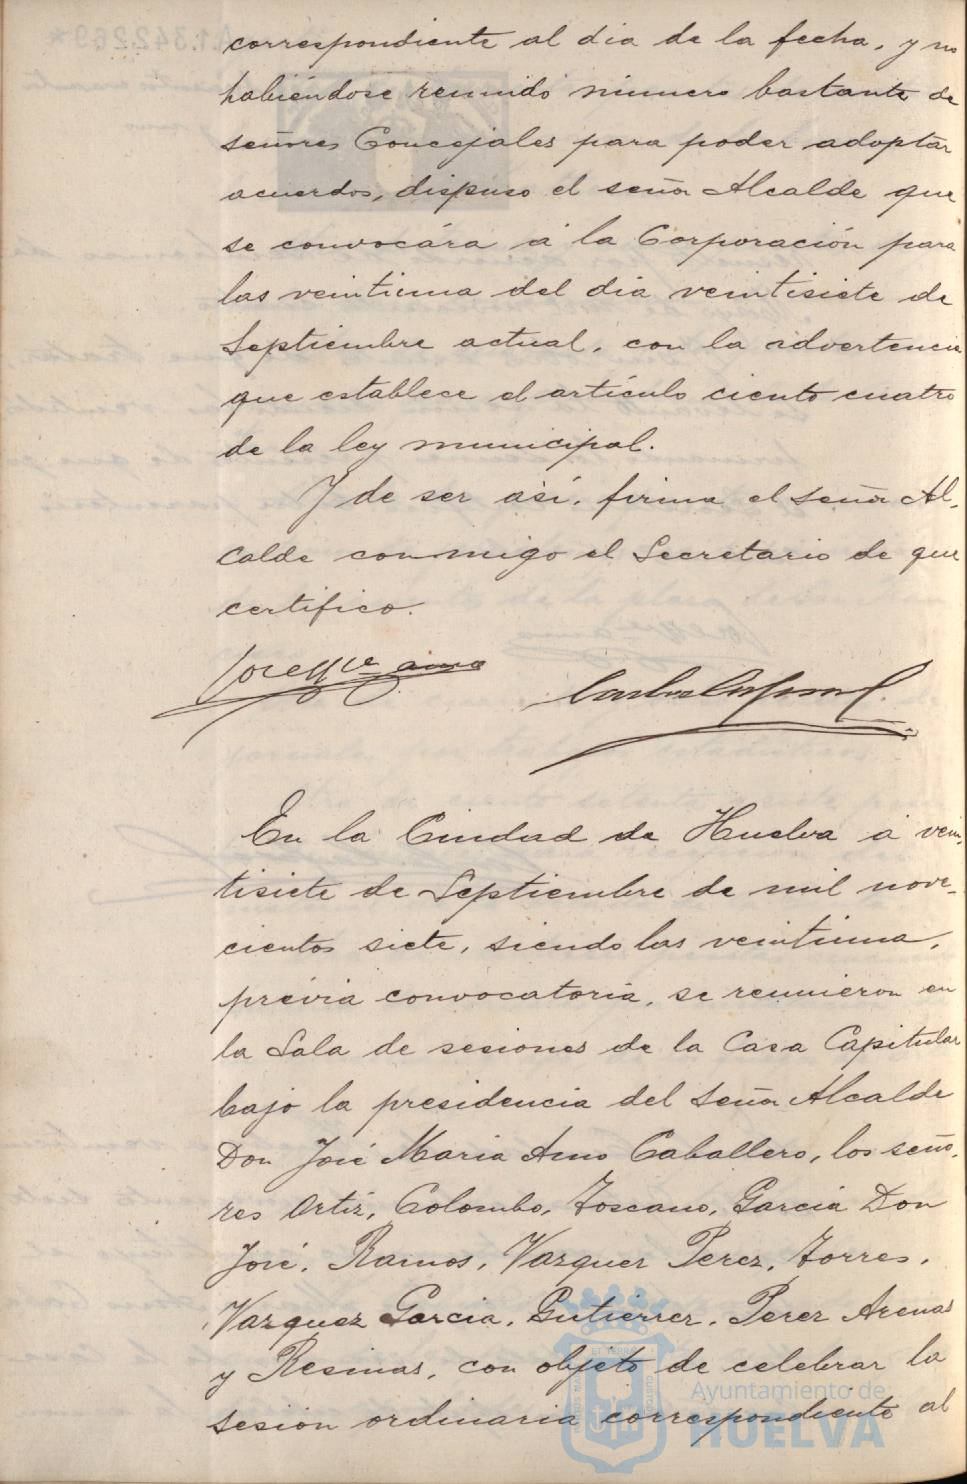 correspondiente al dia de la fecha, y no
habiéndose reunido número bastante de
señores Concejales para poder adoptar
acuerdos, dispuso el señor Alcalde que
se convocára á la Corporación para
las veintiuna del dia veintisiete de
Septiembre actual, con la advertencia
que establece el artículo ciento cuatro
de la ley municipal.
Y de ser así, firma el señor Al-
calde conmigo el Secretario de que
certifico.
En la Ciudad de Huelva á vein-
tisiete de Septiembre de mil nove-
cientos siete, siendo las veintiuna,
prévia convocatoria, se reunieron en
la Sala de sesiones de la Casa Capitular
bajo la presidencia del señor Alcalde
Don José Maria Amo Caballero, los seño-
res Ortiz, Colombo, Toscano, Garcia Don
José, Ramos, Vazquez Perez, Torres,
Vazquez Garcia, Gutierrez, Perez Arenas
y Resinas, con objeto de celebrar la
sesión ordinaria correspondiente al
Ayuntamiento de
HUELVA